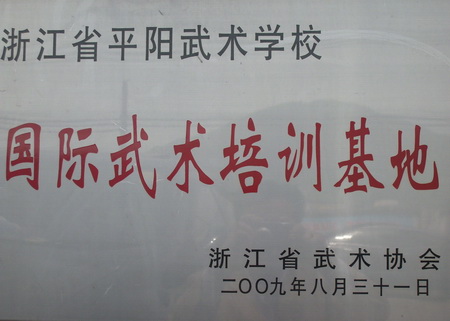 浙江省平阳武术学校
国际武术培训基地
浙江省武术协会
二〇〇九年八月三十一日